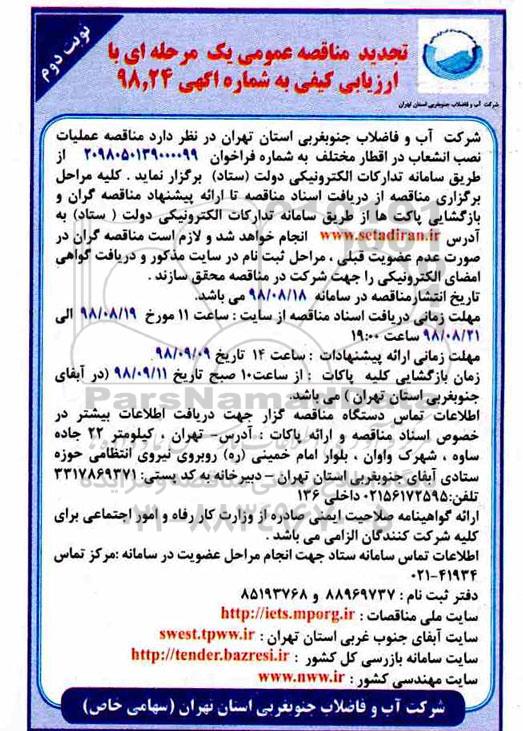 نوبت دوم
تجدید مناقصه عمومی یک مرحله ای با
ارزیابی کیفی به شماره اگهی ۹۸,۲۴
شرکت آب و فاضلاب جنوبغربی استان تهران
شرکت آب و فاضلاب جنوبغربی استان تهران در نظر دارد مناقصه عملیات
نصب انشعاب در اقطار مختلف به شماره فراخوان ۲۰۹۸۰۵۰۱۳۹۰۰۰۰۹۹ از
طریق سامانه تدارکات الکترونیکی دولت (ستاد) برگزار نماید . کلیه مراحل
برگزاری مناقصه از دریافت اسناد مناقصه تا ارائه پیشنهاد مناقصه گران و
بازگشایی پاکت ها از طریق سامانه تدارکات الکترونیکی دولت ( ستاد) به
آدرس www.setadiran.ir انجام خواهد شد و لازم است مناقصه گران در
صورت عدم عضویت قبلی ، مراحل ثبت نام در سایت مذکور و دریافت گواهی
امضای الکترونیکی را جهت شرکت در مناقصه محقق سازند .
تاریخ انتشارمناقصه در سامانه ۹۸/۰۸/۱۸ می باشد.
مهلت زمانی دریافت اسناد مناقصه از سایت : ساعت ۱۱ مورخ ۹۸/۰۸/۱۹ الی
۹۸/۰۸/۲۱ ساعت ۱۹:۰۰
مهلت زمانی ارائه پیشنهادات : ساعت ۱۴ تاریخ ۹۸/۰۹/۰۹
زمان بازگشایی کلیه پاکات : از ساعت۱۰ صبح تاریخ ۹۸/۰۹/۱۱ (در آبفای
جنوبغربی استان تهران ) می باشد.
اطلاعات تماس دستگاه مناقصه گزار جهت دریافت اطلاعات بیشتر در
خصوص اسناد مناقصه و ارائه پاکات : آدرس- تهران ، کیلومتر ۲۲ جاده
ساوه ، شهرک واوان ، بلوار امام خمینی (ره) روبروی نیروی انتظامی حوزه
ستادی آبفای جنوبغربی استان تهران – دبیرخانه به کد پستی: ۳۳۱۷۸۶۹۳۷۱
تلفن:۰۲۱۵۶۱۷۲۵۹۵ داخلی ۱۳۶
ارائه گواهینامه صلاحیت ایمنی صادره از وزارت کار رفاه و امور اجتماعی برای
کلیه شرکت کنندگان الزامی می باشد .
اطلاعات تماس سامانه ستاد جهت انجام مراحل عضویت در سامانه :مرکز تماس
۰۲۱-۴۱۹۳۴
دفتر ثبت نام : ۸۸۹۶۹۷۳۷ و ۸۵۱۹۳۷۶۸
سایت ملی مناقصات : http://iets.mporg.ir
سایت آبفای جنوب غربی استان تهران : swest.tpww.ir
سایت سامانه بازرسی کل کشور : http://tender.bazresi.ir
سایت مهندسی کشور : www.nww.ir
شرکت آب و فاضلاب جنوبغربی استان تهران (سهامی خاص)